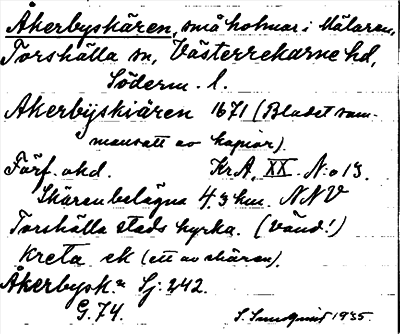 Åkerbyskären, små holmar i Mälaren,
Torshälla sn, Västerrekarne hd,
Söderm. l.
Akerbÿskiären 1671 (Bladet sam-
mansatt av kopior).
Förf. okd. Kr.A. XX. N:o 13.
Skären belägna 4.3 km. NNV
Torshälla stads kyrka. (Vänd!)
kreta ek (ett av skären).
Åkerbysk:n Sj: 242.
G. 74. S. Sundqvist 1935.